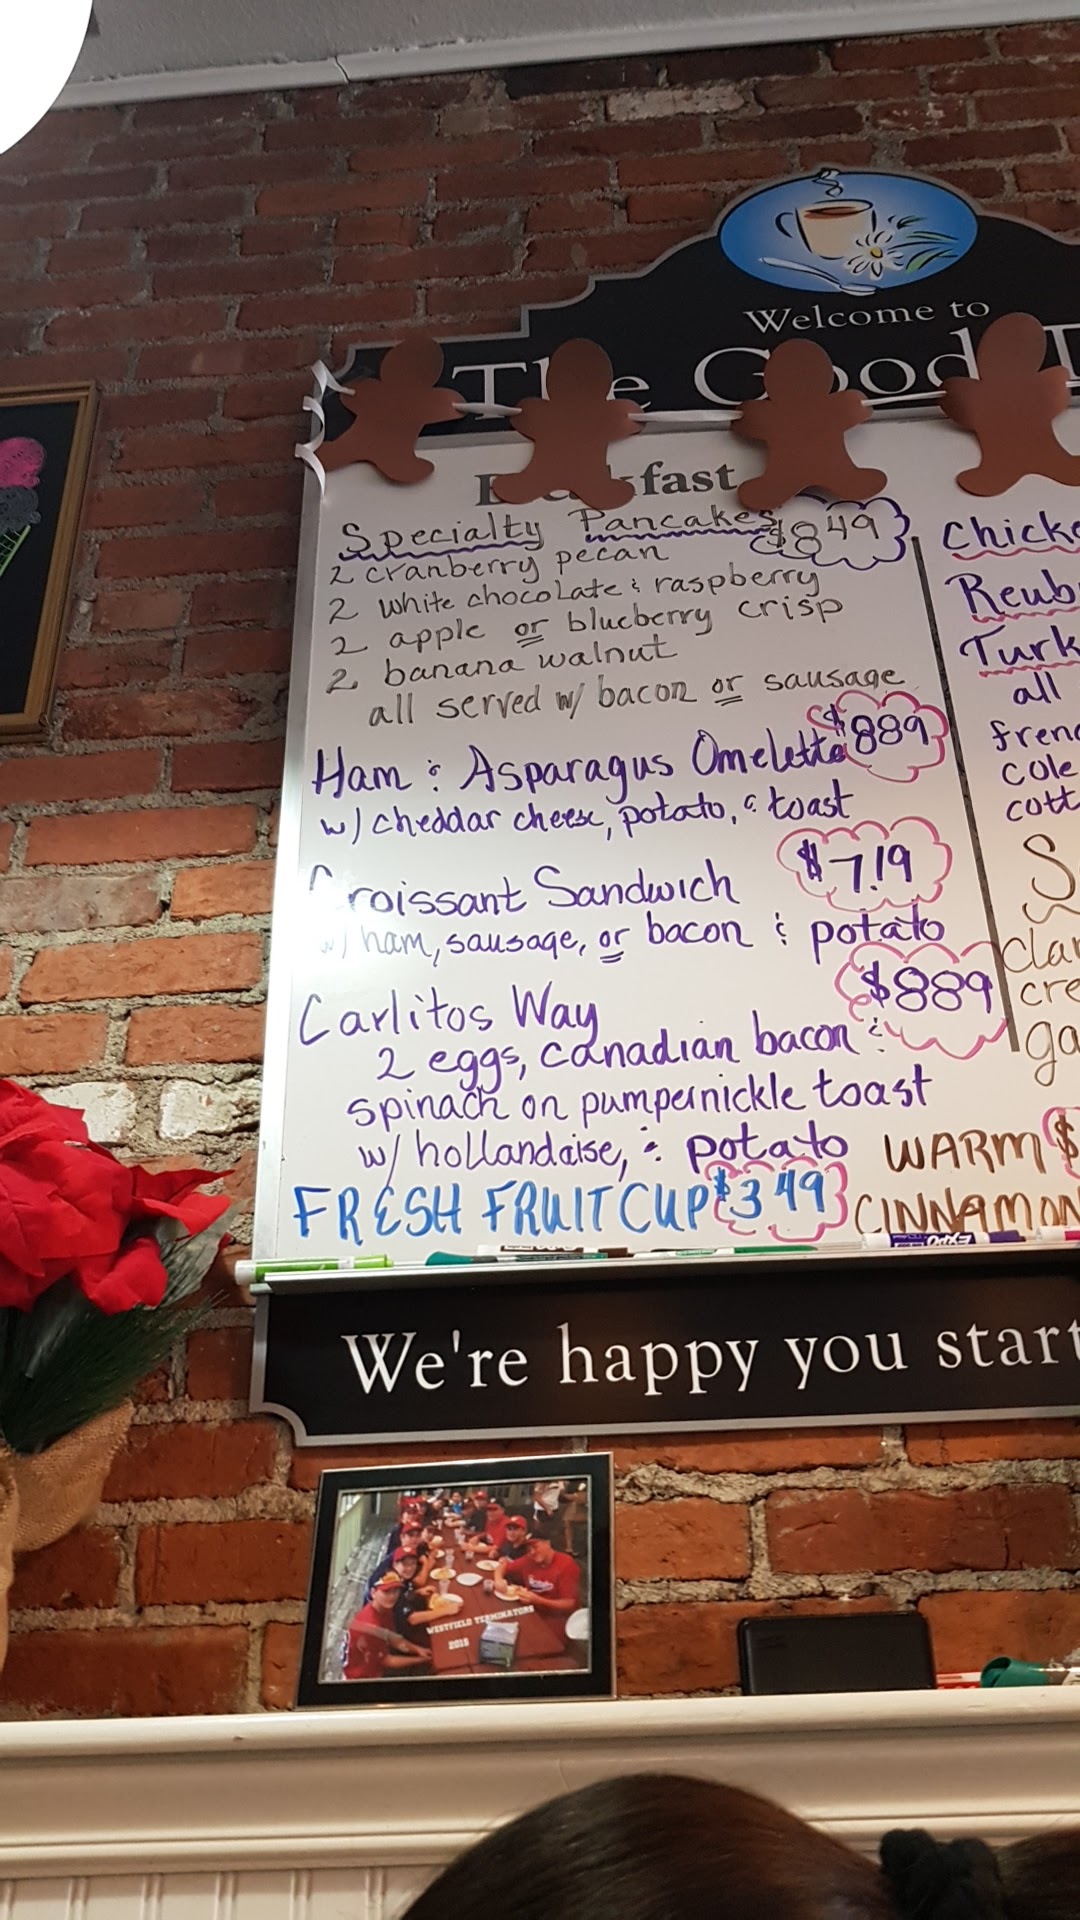 Welcome to
The Good
fast
Specialty Pancakes $8 49
2 cranberry pecan
2 white chocolate & raspberry
2 apple or blueberry crisp
2 banana walnut
all served w/ bacon or sausage
Ham & Asparagus Omelette $889
w/ cheddar cheese, potato, & toast
Croissant Sandwich $7.19
w/ ham, sausage, or bacon & potato
Carlitos Way $889
2 eggs, canadian bacon &
spinach on pumpernickle toast
w/ hollandaise, & potato
FRESH FRUIT CUP $3 49
Chicke
Reub
Turk
all
fren
cole
cott
S
cla
cre
ga
WARM $
CINNAMON
EXPO
We're happy you start
WESTFIELD TERMINATORS
2018